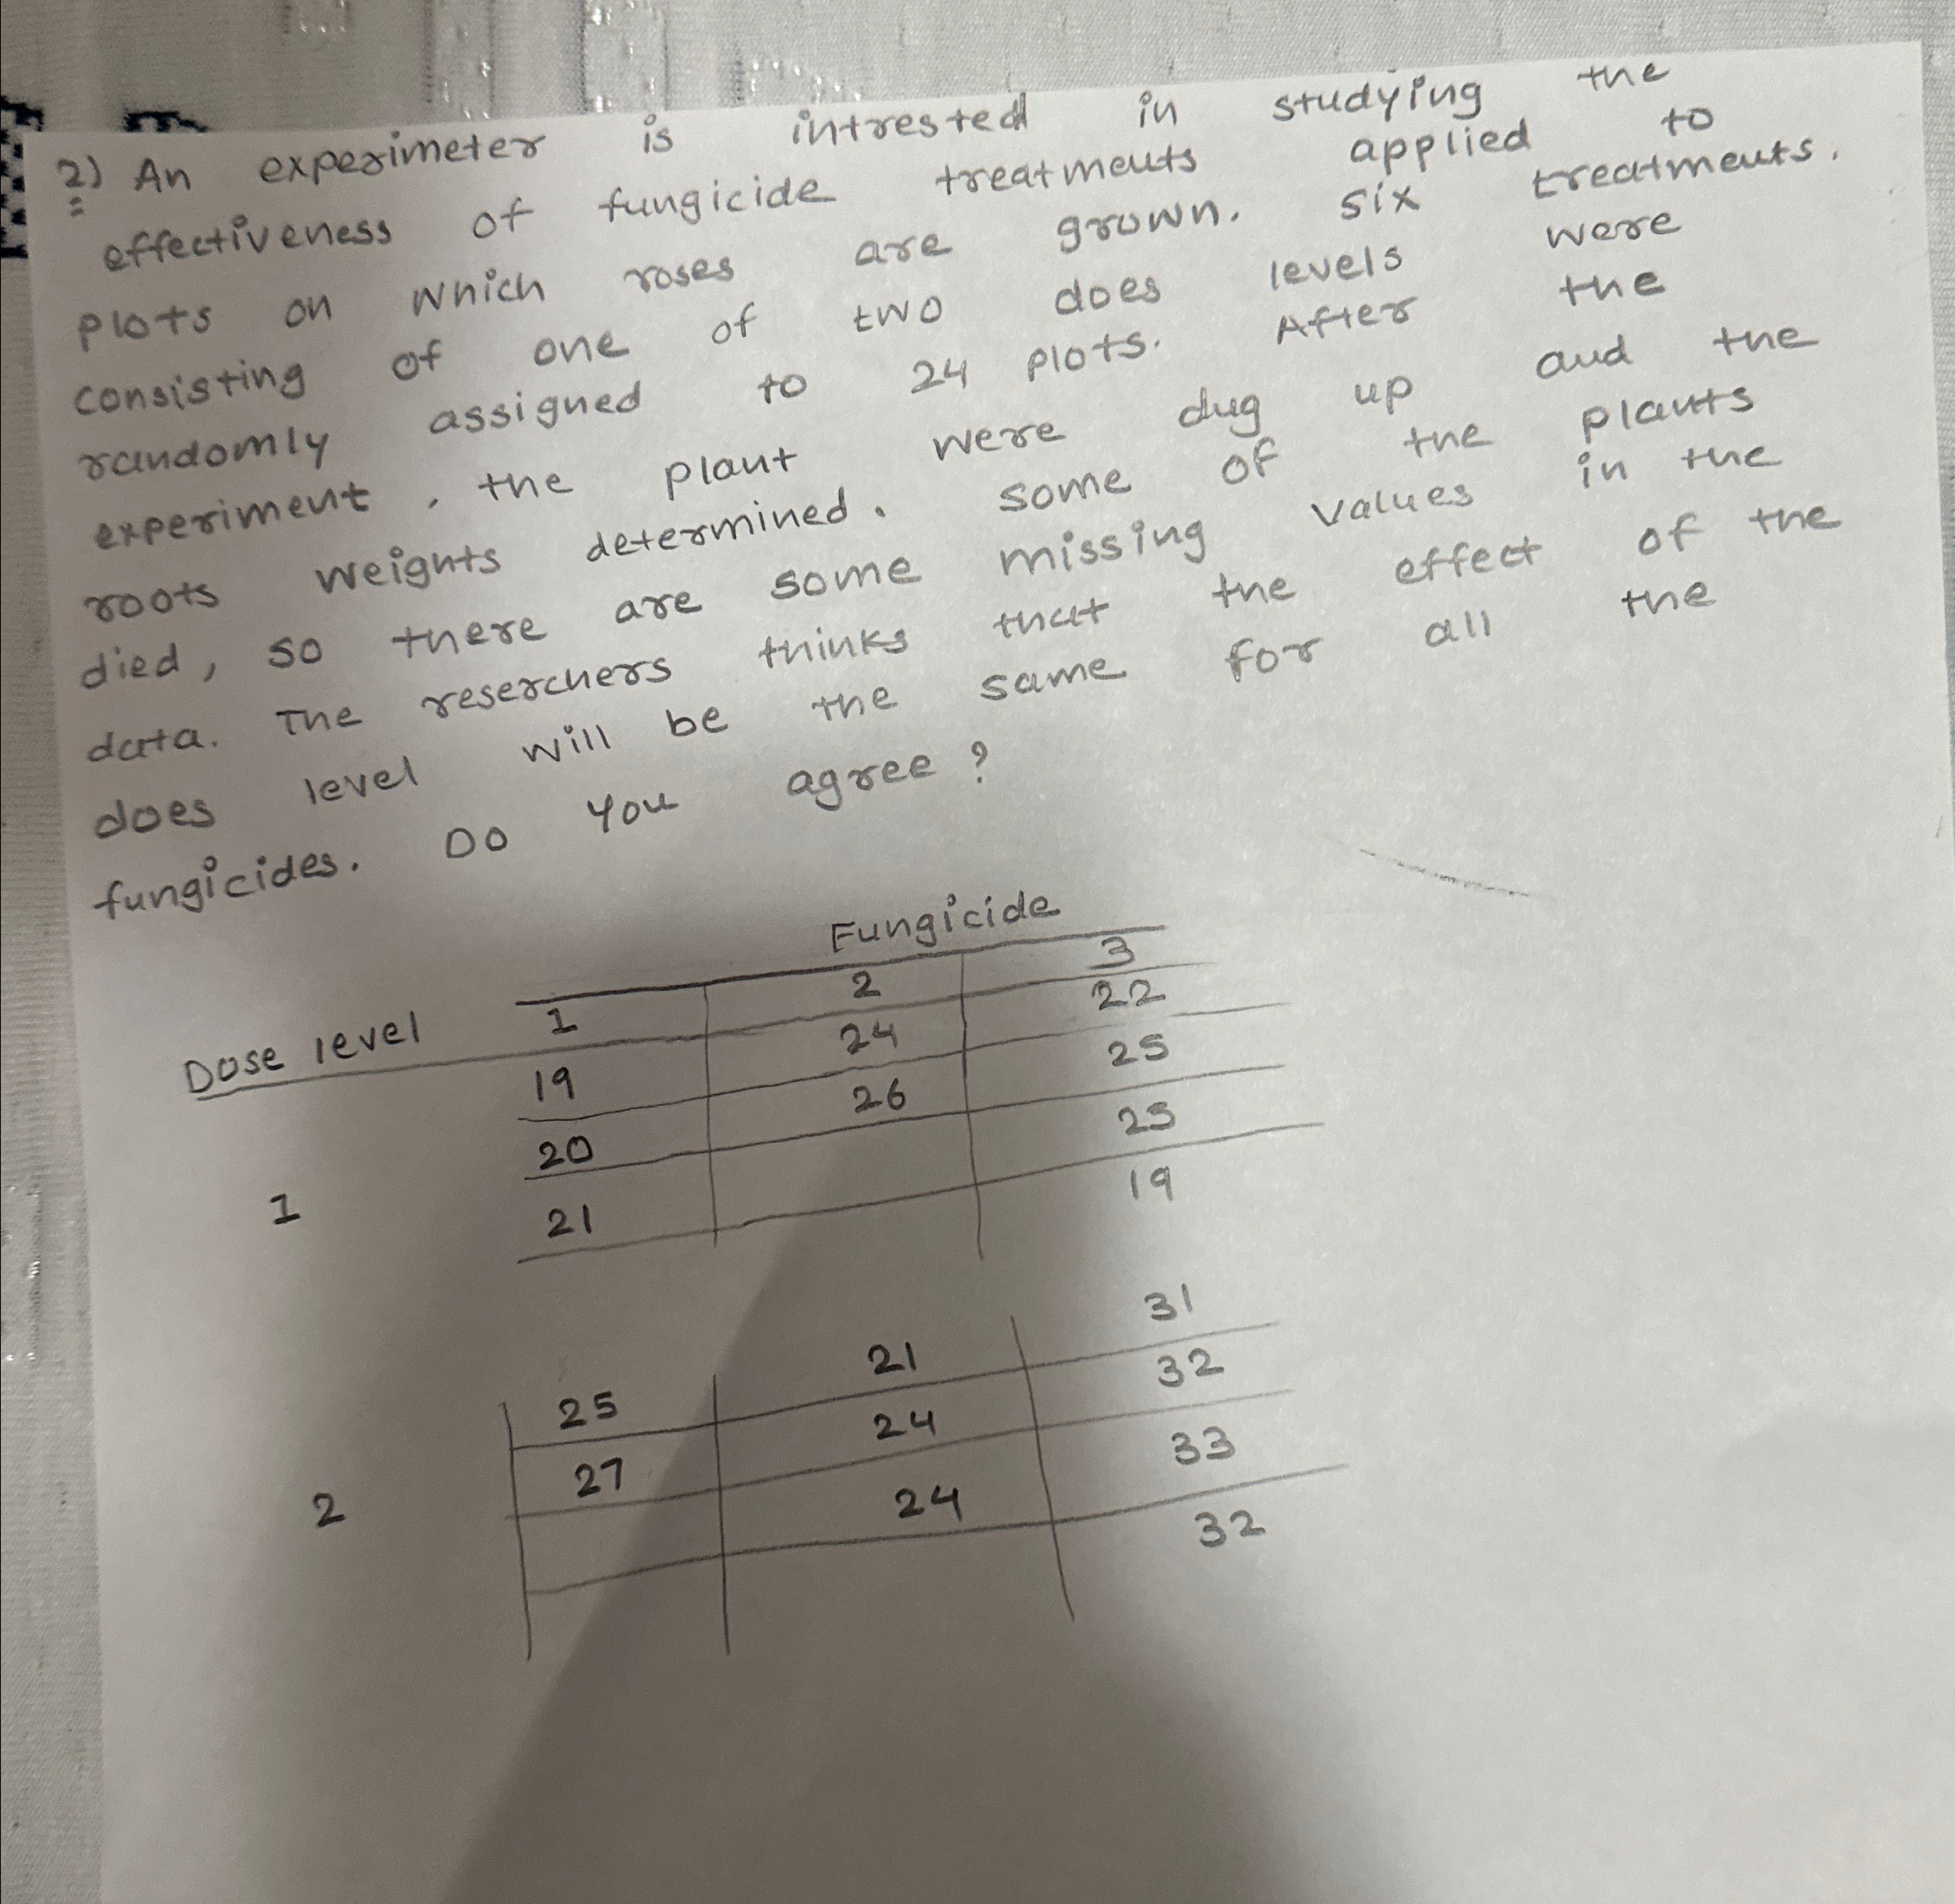 2) An experimeter is intrested in studying the
effectiveness of fungicide treatments applied to
plots on which roses are grown. six treatments.
consisting of one of two does levels were
randomly assigned to 24 plots. After the
experiment, the plant were dug up and the
roots weights determined. some of the plants
died, so there are some missing values in the
data. The reserchers thinks that the effect of the
does level will be the same for all the
fungicides. Do you agree?
Fungicide
Dose level 1 2 3
19 24 22
20 26 25
1 21 25
19
25 21 31
27 24 32
2 24 33
32